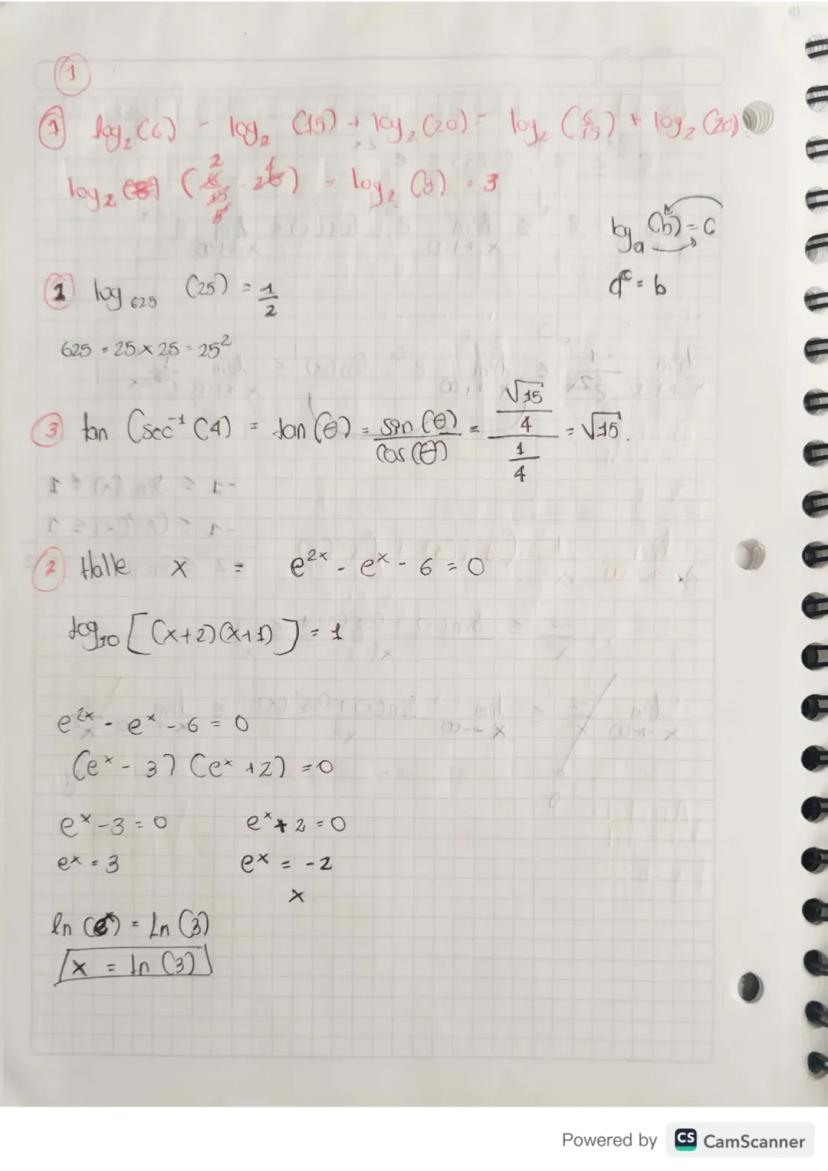 1
1 log₂(6) - log₂ (15) + log₂(20) = log₂ (6/15) + log₂(20)
log₂ (8) = 3
log_a (b) = c
a^c = b
2 log₆₂₅ (25) = 1/2
625 = 25 x 25 = 25²
3 tan (sec⁻¹ (4) = tan(θ) = sen(θ)/cos(θ) = (√15/4)/(1/4) = √15.
2 Halle x = e^2x - e^x - 6 = 0
log₁₀ [(x+2)(x+1)] = 1
e^2x - e^x - 6 = 0
(e^x - 3) (e^x + 2) = 0
e^x - 3 = 0 e^x + 2 = 0
e^x = 3 e^x = -2
x
ln (e^x) = Ln (3)
x = ln (3)
Powered by CS CamScanner